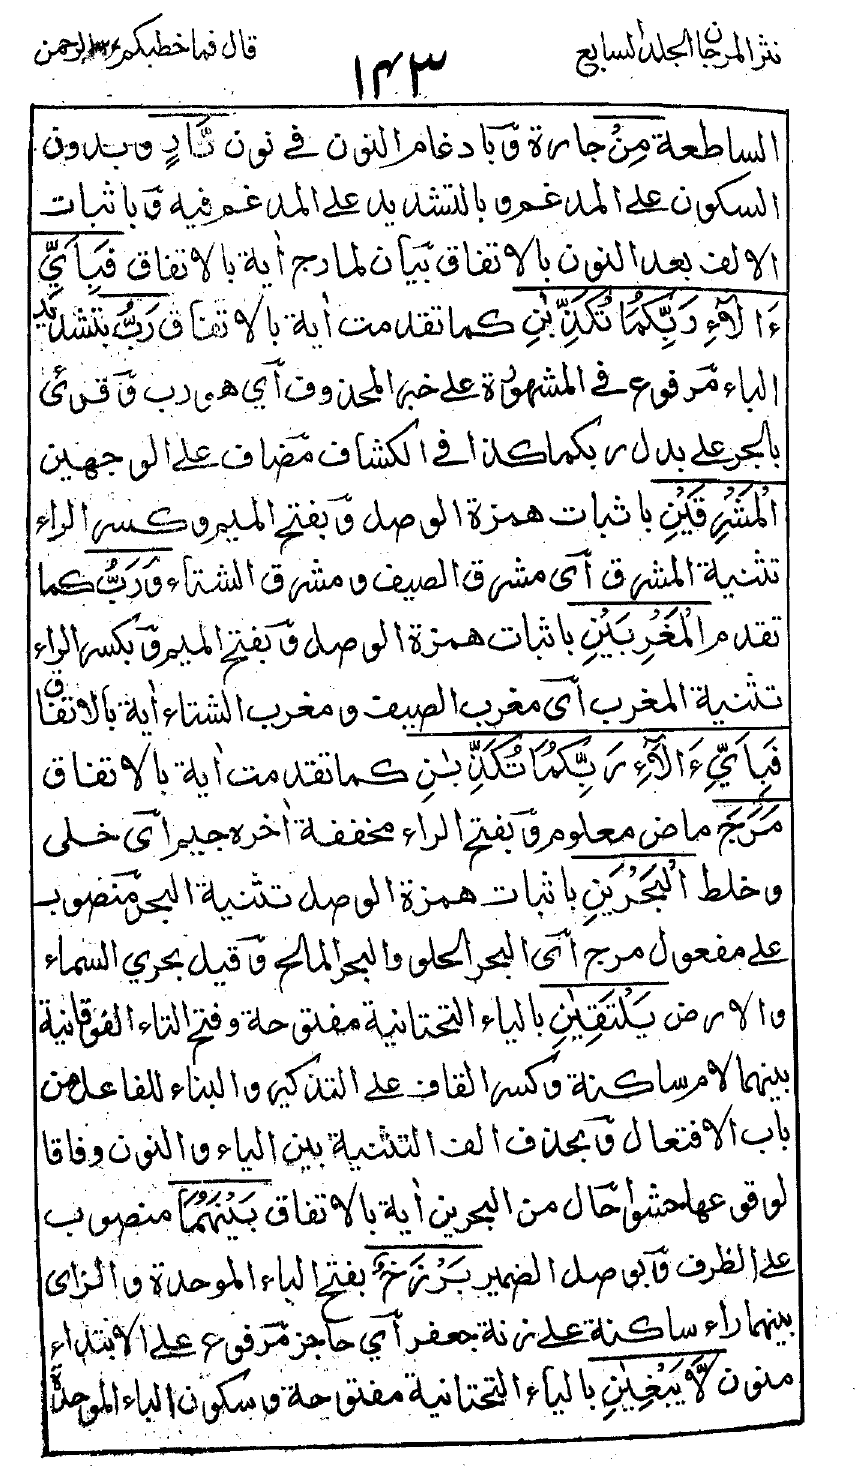 نثر المرجان الجلد السابع
١٤٣
قال فما خطبكم ٢٧ الرحمن
الساطعة مِنْ جارة وبادغام النون في نون نَّارٍ وبدون
السكون على المدغم وبالتشديد على المدغم فيه وباثبات
الالف بعد النون بالاتفاق بيان لمارج اية بالاتفاق فَبِأَيِّ
ءَالَآءِ رَبِّكُمَا تُكَذِّبٰنِ كما تقدمت اية بالاتفاق رَبُّ بتشديد
الباء مرفوع في المشهورة على خبر المحذوف أي هو رب وقرئ
بالجر على بدل ربكما كذا في الكشاف مضاف على الوجهين
الْمَشْرِقَيْنِ باثبات همزة الوصل وبفتح الميم وكسر الراء
تثنية المشرق أي مشرق الصيف ومشرق الشتاء وَرَبُّ كما
تقدم الْمَغْرِبَيْنِ باثبات همزة الوصل وبفتح الميم وبكسر الراء
تثنية المغرب أي مغرب الصيف ومغرب الشتاء اية بالاتفاق
فَبِأَيِّ ءَالَآءِ رَبِّكُمَا تُكَذِّبٰنِ كما تقدمت اية بالاتفاق
مَرَجَ ماض معلوم وبفتح الراء مخففة اخره جيم أي خلى
وخلط الْبَحْرَيْنِ باثبات همزة الوصل تثنية البحر منصوب
على مفعول مرج أي البحر الحلو والبحر المالح وقيل بحري السماء
والارض يَلْتَقِيٰنِ بالياء التحتانية مفتوحة وفتح التاء الفوقانية
بينهما لام ساكنة وكسر القاف على التذكير والبناء للفاعل من
باب الافتعال وبحذف الف التثنية بين الياء والنون وفاقا
لوقوعها حشوا حال من البحرين اية بالاتفاق بَيْنَهُمَا منصوب
على الظرف وبوصل الضمير بَرْزَخٌ بفتح الباء الموحدة والزاى
بينهما راء ساكنة على زنة جعفر أي حاجز مرفوع على الابتداء
منون لَّا يَبْغِيٰنِ بالياء التحتانية مفتوحة وسكون الباء الموحدة